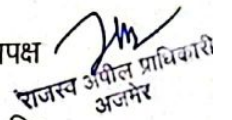 पक्ष
राजस्व अपील प्राधिकारी
अजमेर